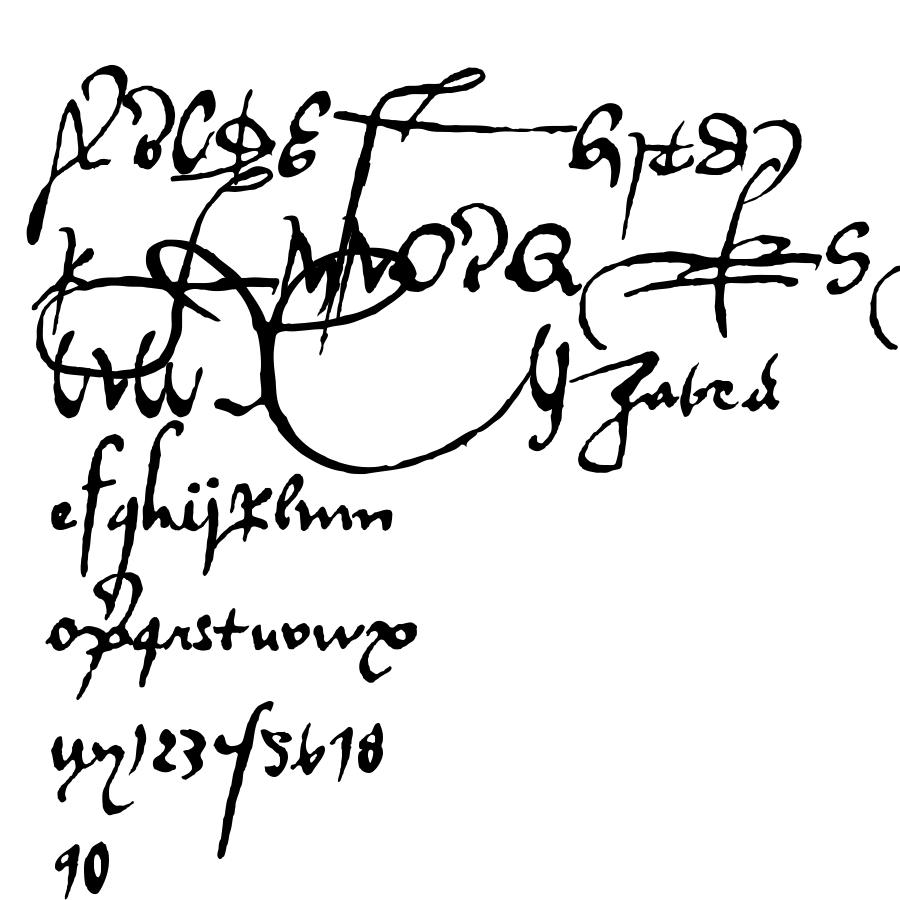 ABCDEFGHIJ
KLMNOPQRS
UVWXYZabcd
efghijklmn
opqrstuvwx
yz12345678
90